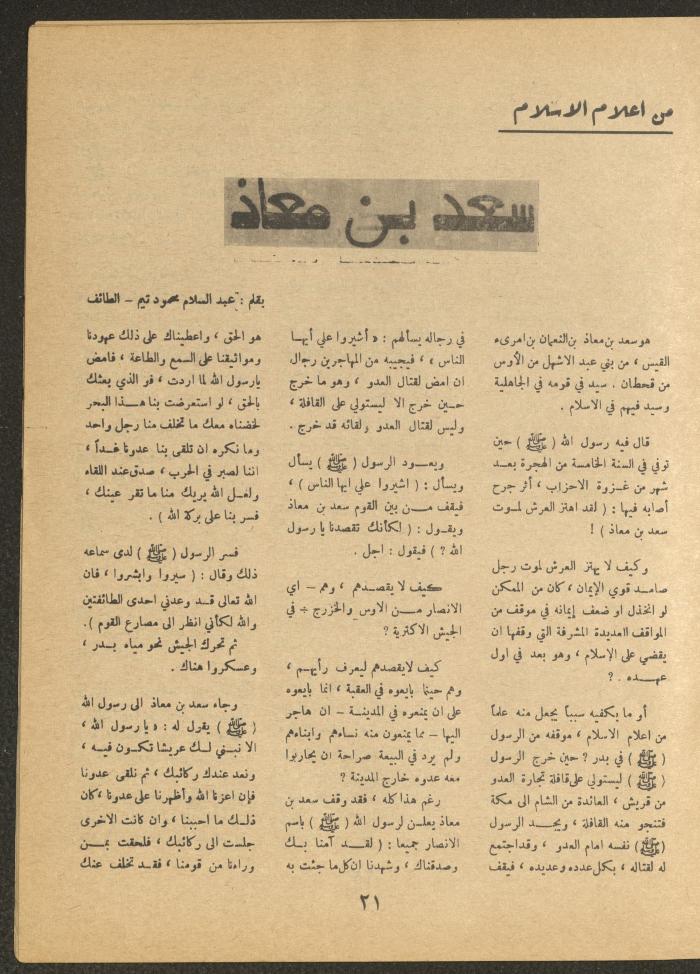 من اعلام الاسلام
سعد بن معاذ
بقلم : عبد السلام محمود تيم – الطائف
هو سعد بن معاذ بن النعمان بن امرىء
القيس ، من بني عبد الاشهل من الأوس
من قحطان . سيد في قومه في الجاهلية
وسيد فيهم في الاسلام .
قال فيه رسول الله ( ﷺ ) حين
توفي في السنة الخامسة من الهجرة بعد
شهر من غزوة الاحزاب ، أثر جرح
أصابه فيها : ( لقد اهتز العرش لموت
سعد بن معاذ ) !
وكيف لا يهتز العرش لموت رجل
صامد قوي الإيمان ، كان من الممكن
لو انخذل او ضعف إيمانه في موقف من
المواقف العديدة المشرفة التي وقفها ان
يقضي على الإسلام ، وهو بعد في اول
عهده . ?
أو ما يكفيه سبباً يجعل منه علماً
من اعلام الاسلام ، موقفه من الرسول
( ﷺ ) في بدر ? حين خرج الرسول
( ﷺ ) ليستولي على قافلة تجارة العدو
من قريش ، العائدة من الشام الى مكة
فتنجو منه القافلة ، ويجد الرسول
( ﷺ ) نفسه امام العدو ، وقد اجتمع
له لقتاله ، بكل عدده وعديده ، فيقف
في رجاله يسألهم : « أشيروا علي أيها
الناس » ، فيجيبه من المهاجرين رجال
ان امض لقتال العدو ، وهو ما خرج
حين خرج الا ليستولي على القافلة ،
وليس لقتال العدو ولقائه قد خرج .
ويعود الرسول ( ﷺ ) يسأل
ويسأل : ( اشيروا علي ايها الناس ) ،
فيقف من بين القوم سعد بن معاذ
ويقول : ( لكأنك تقصدنا يا رسول
الله ? ) فيقول : اجل .
كيف لا يقصدهم ، وهم – اي
الانصار من الاوس والخزرج ÷ في
الجيش الاكثرية ?
كيف لا يقصدهم ليعرف رأيهم ،
وهم حينما بايعوه في العقبة ، انما بايعوه
على ان يمنعوه في المدينة – ان هاجر
اليها – مما يمنعون منه نساءهم وابناءهم
ولم يرد في البيعة صراحة ان يحاربوا
معه عدوه خارج المدينة ?
رغم هذا كله ، فقد وقف سعد بن
معاذ يعلن لرسول الله ( ﷺ ) باسم
الانصار جميعا : ( لقد آمنا بك
وصدقناك ، وشهدنا ان كل ما جئت به
هو الحق ، واعطيناك على ذلك عهودنا
ومواثيقنا على السمع والطاعة ، فامض
يارسول الله لما اردت ، فو الذي بعثك
بالحق ، لو استعرضت بنا هذا البحر
لخضناه معك ما تخلف منا رجل واحد
وما نكره ان تلقى بنا عدونا غداً ،
اننا لصبر في الحرب ، صدق عند اللقاء
ولعل الله يريك منا ما تقر عينك ،
فسر بنا على بركة الله ) .
فسر الرسول ( ﷺ ) لدى سماعه
ذلك وقال : ( سيروا وابشروا ، فان
الله تعالى قد وعدني احدى الطائفتين
والله لكأني انظر الى مصارع القوم ) .
ثم تحرك الجيش نحو مياه بدر ،
وعسكروا هناك .
وجاء سعد بن معاذ الى رسول الله
( ﷺ ) يقول له : « يا رسول الله ،
الا نبني لك عريشا تكون فيه ،
ونعد عندك ركائبك ، ثم نلقى عدونا
فإن اعزنا الله وأظهرنا على عدونا ، كان
ذلك ما احببنا ، وان كانت الاخرى
جلست الى ركائبك ، فلحقت بمن
وراءنا من قومنا ، فقد تخلف عنك
٢١